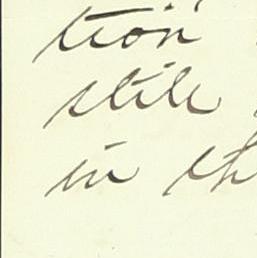 tion
still
in th